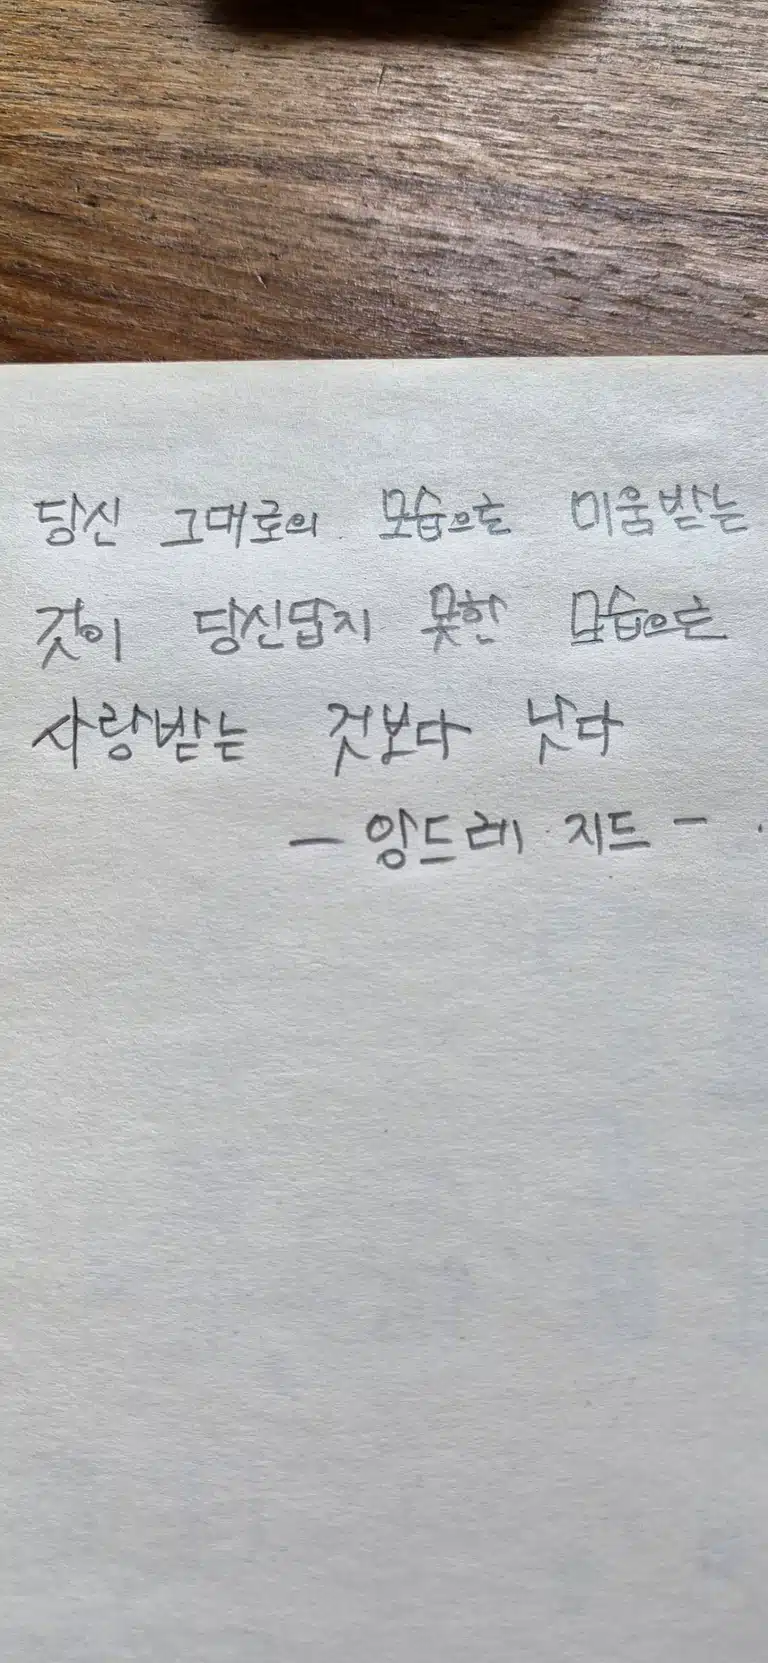 당신 그대로의 모습으로 미움받는
것이 당신답지 못한 모습으로
사랑받는 것보다 낫다
- 앙드레 지드 -